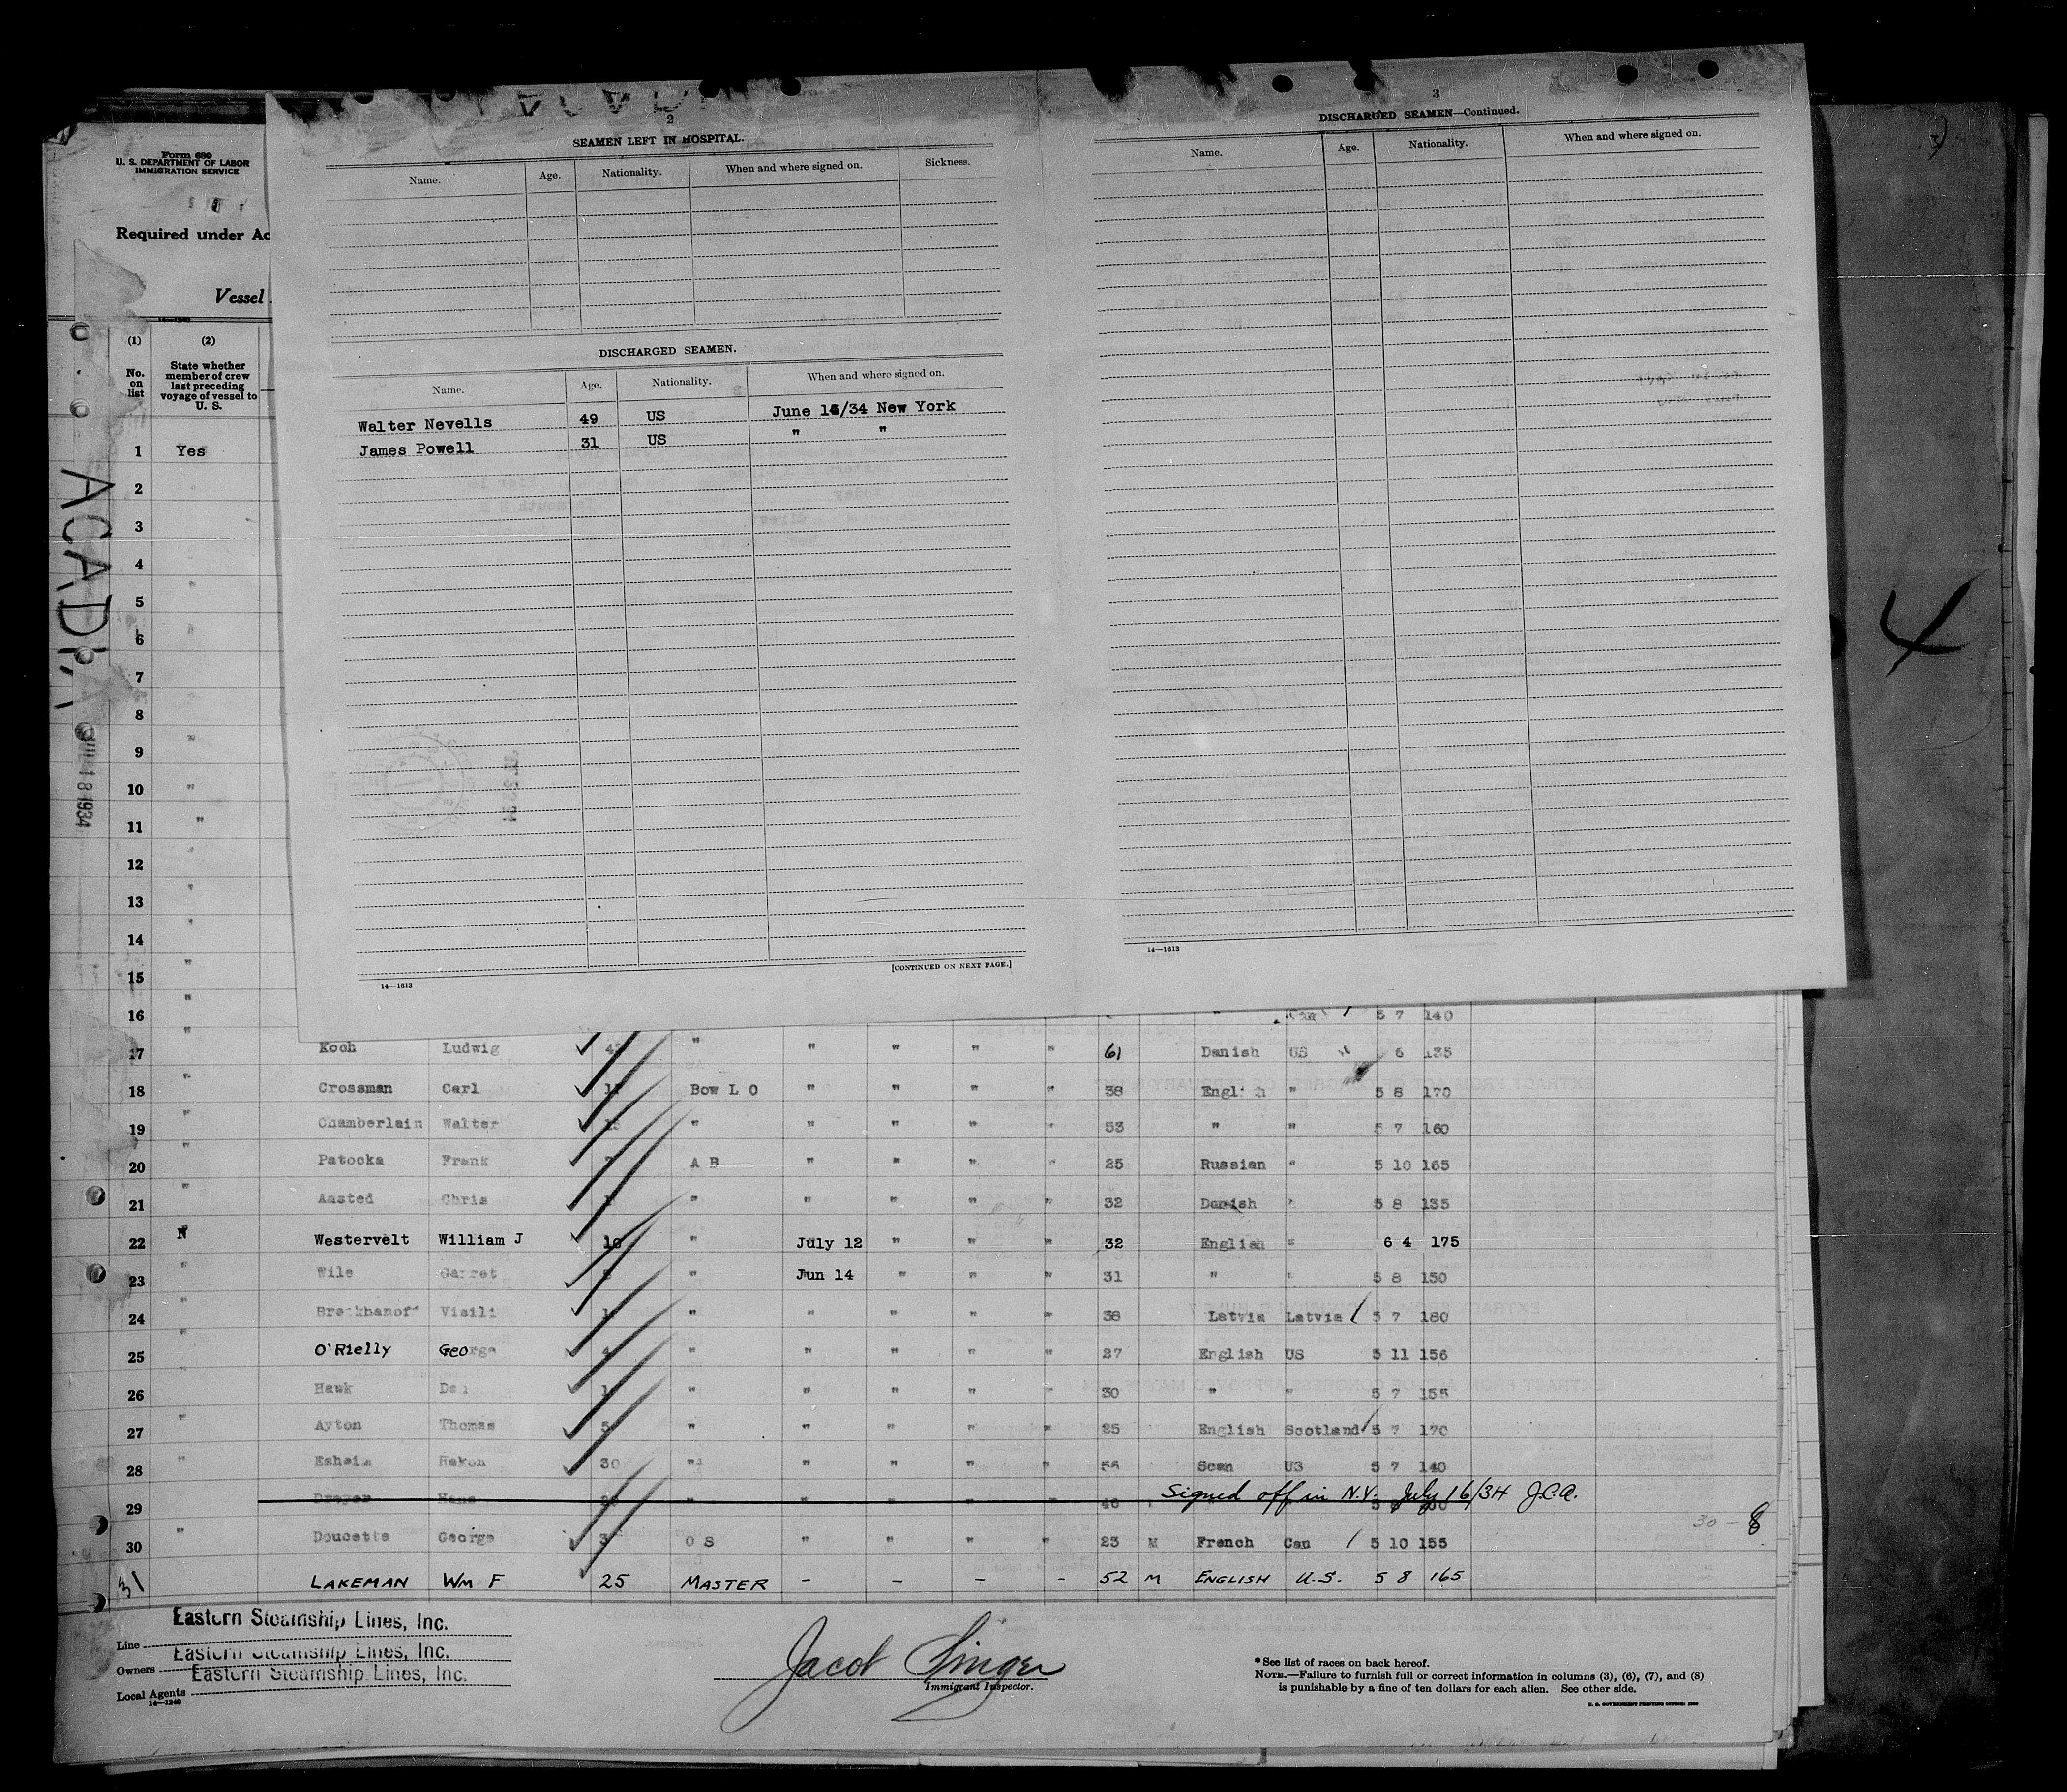 2
SEAMEN LEFT IN HOSPITAL.
Name. Age. Nationality. When and where signed on. Sickness.
DISCHARGED SEAMEN.
Name. Age. Nationality. When and where signed on.
Walter Nevells 49 US June 14/34 New York
James Powell 31 US " "
[CONTINUED ON NEXT PAGE.]
14—1613
3
DISCHARGED SEAMEN—Continued.
Name. Age. Nationality. When and where signed on.
14—1613
4
Form 680
U. S. DEPARTMENT OF LABOR
IMMIGRATION SERVICE
Required under Ac
Vessel
(1) (2)
No. on list
State whether member of crew last preceding voyage of vessel to U. S.
ACADI
JUL 18 1934
1 Yes
2
3
4
5 "
6 "
7
8
9 "
10 "
11 "
12 "
13 "
14 "
15 "
16 " " Can / 5 7 140
17 " Koch Ludwig " " " " " 61 Danish US 6 135
18 " Crossman Carl Bow L O " " " " 38 English " 5 8 170
19 " Chamberlain Walter " " " " " 53 " " 5 7 160
20 " Patocka Frank 7 A B " " " " 25 Russian " 5 10 165
21 " Aasted Chris " " " " " 32 Danish " 5 8 135
22 N Westervelt William J 10 " July 12 " " " 32 English " 6 4 175
23 " Wile Garret " Jun 14 " " " 31 " " 5 8 150
24 " Visili " " " " " 38 Latvia Latvia / 5 7 180
25 " O'Rielly George 4 " " " " " 27 English US 5 11 156
26 " Hawk " " " " " 30 " " 5 7 155
27 " Ayton Thomas 5 " " " " " 25 English Scotland / 5 7 170
28 " Esheim Hakon 30 " " " " " 56 Scan US 5 7 140
29 Dreyer Hans " " " " " 46 Signed off in N.Y. July 16/34 J.C.A.
30 " Doucette George 3 O S " " " " 23 M French Can / 5 10 155
30 - 8
31 LAKEMAN WM F 25 MASTER - - - - 52 M ENGLISH U.S. 5 8 165
Line Eastern Steamship Lines, Inc.
Owners Eastern Steamship Lines, Inc.
Local Agents Eastern Steamship Lines, Inc.
14—1240
Jacob Singer
Immigrant Inspector.
*See list of races on back hereof.
NOTE.—Failure to furnish full or correct information in columns (3), (6), (7), and (8)
is punishable by a fine of ten dollars for each alien. See other side.